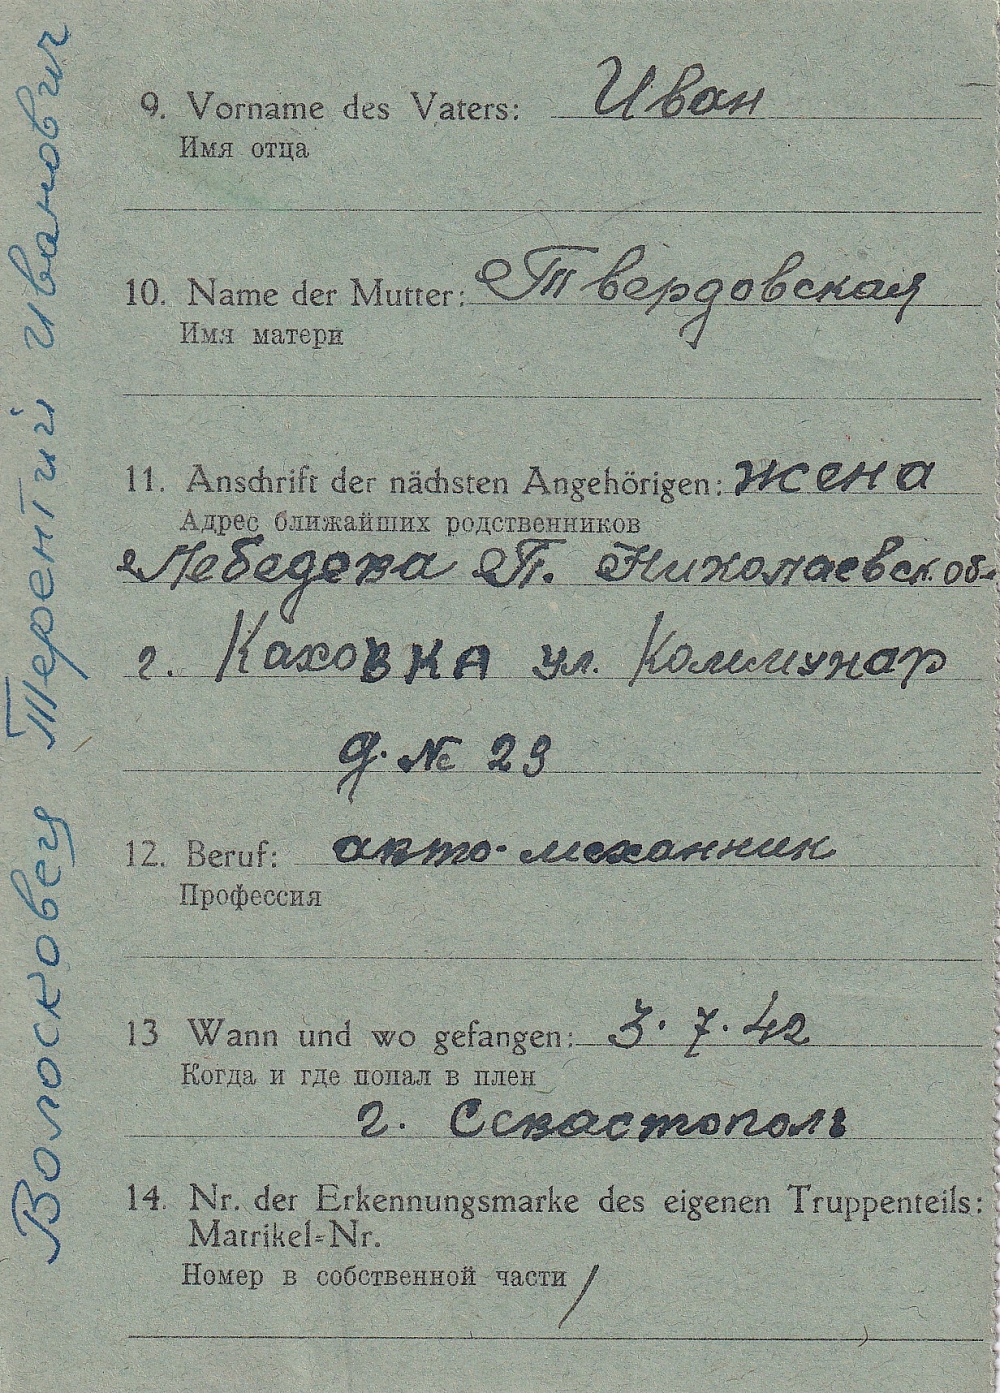 Волосковец Терентий Иванович
9. Vorname des Vaters: Иван
Имя отца
10. Name der Mutter: Твердовская
Имя матери
11. Anschrift der nächsten Angehörigen: жена
Адрес ближайших родственников
Лебедева П. Николаевск. обл.
г. Каховка ул. Коммунар
д. № 29
12. Beruf: авто-механник
Профессия
13 Wann und wo gefangen: 3. 7. 42
Когда и где попал в плен
г. Севастополь
14. Nr. der Erkennungsmarke des eigenen Truppenteils:
Matrikel-Nr.
Номер в собственной части /